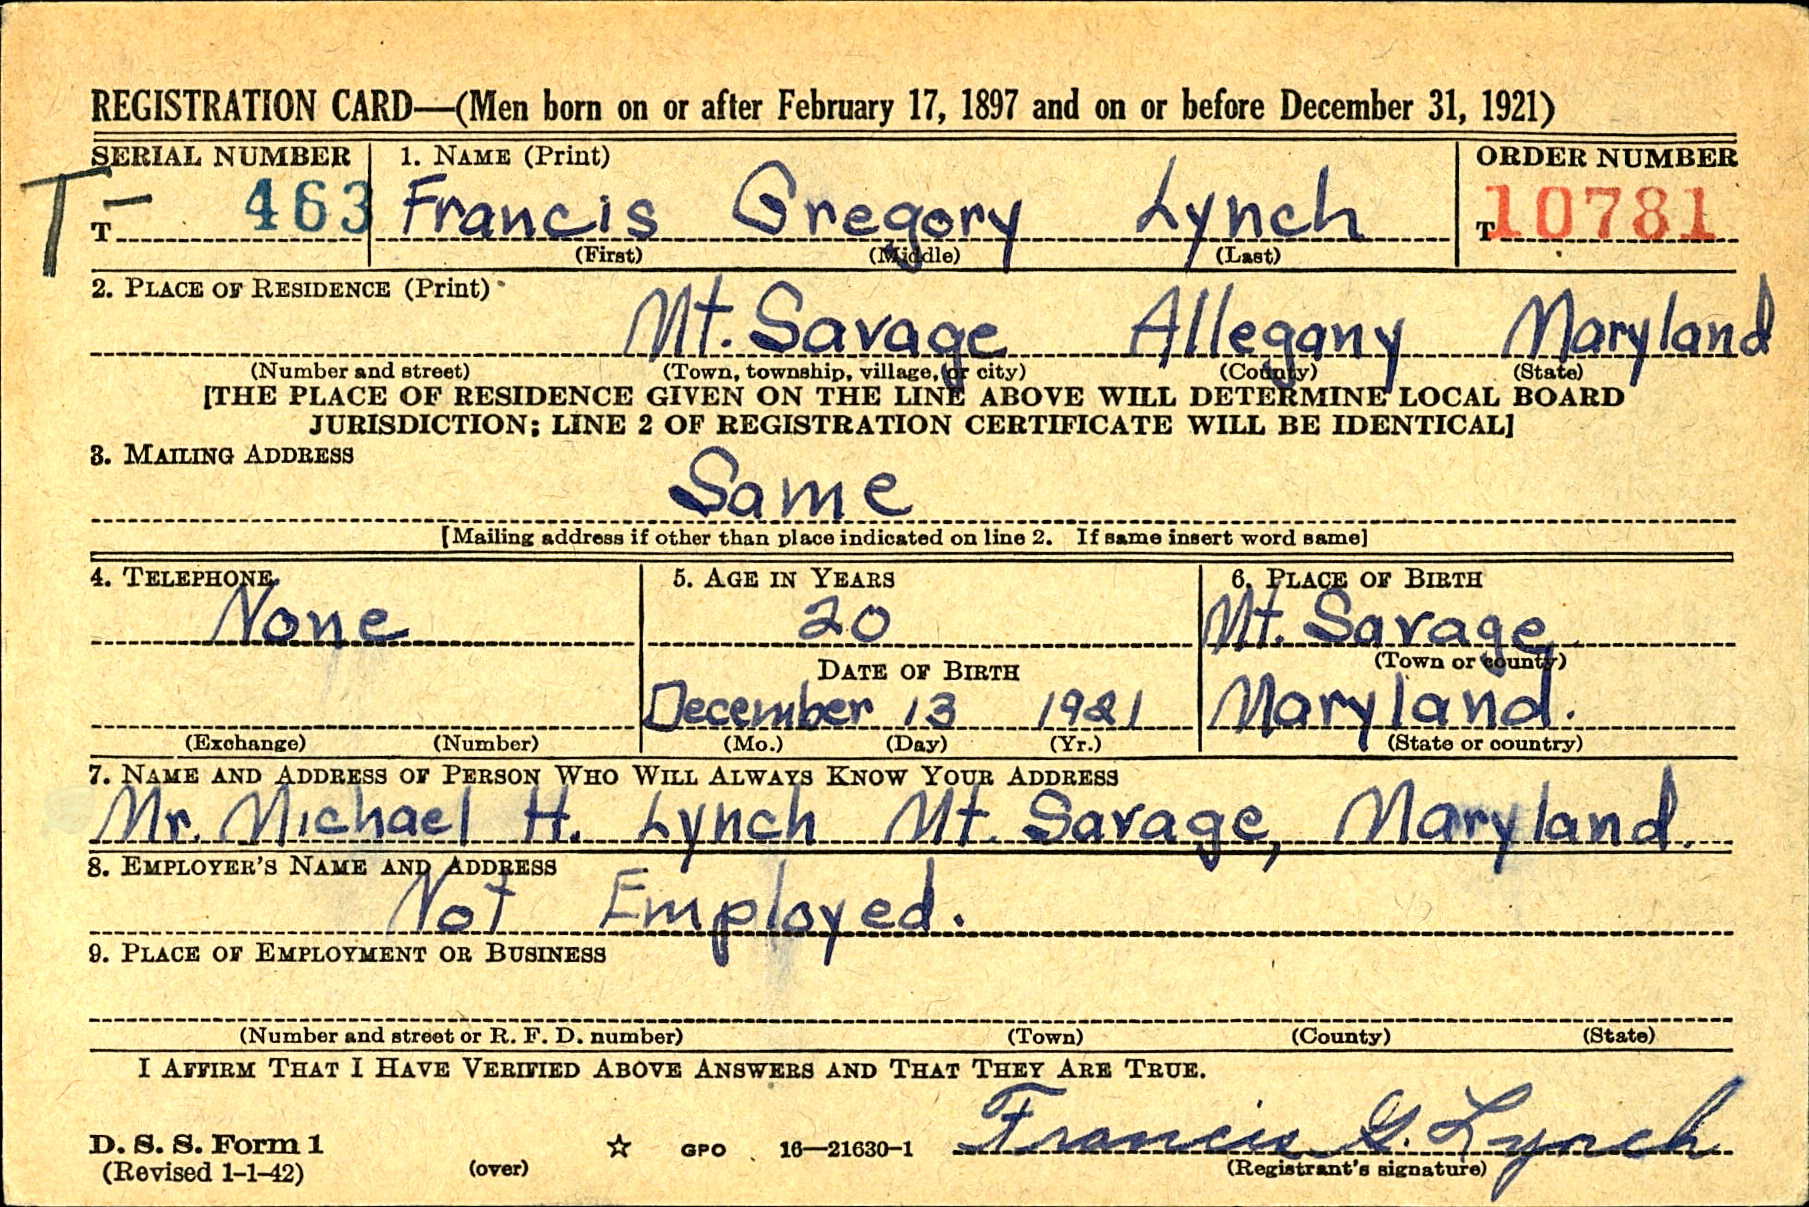 REGISTRATION CARD—(Men born on or after February 17, 1897 and on or before December 31, 1921)
SERIAL NUMBER 1. NAME (Print) ORDER NUMBER
T- T 463 Francis Gregory Lynch T 10781
(First) (Middle) (Last)
2. PLACE OF RESIDENCE (Print)
Mt. Savage Allegany Maryland
(Number and street) (Town, township, village, or city) (County) (State)
[THE PLACE OF RESIDENCE GIVEN ON THE LINE ABOVE WILL DETERMINE LOCAL BOARD
JURISDICTION; LINE 2 OF REGISTRATION CERTIFICATE WILL BE IDENTICAL]
3. MAILING ADDRESS
Same
[Mailing address if other than place indicated on line 2. If same insert word same]
4. TELEPHONE 5. AGE IN YEARS 6. PLACE OF BIRTH
None 20 Mt. Savage
DATE OF BIRTH (Town or county)
December 13 1921 Maryland.
(Exchange) (Number) (Mo.) (Day) (Yr.) (State or country)
7. NAME AND ADDRESS OF PERSON WHO WILL ALWAYS KNOW YOUR ADDRESS
Mr. Michael H. Lynch Mt. Savage, Maryland.
8. EMPLOYER'S NAME AND ADDRESS
Not Employed.
9. PLACE OF EMPLOYMENT OR BUSINESS
(Number and street or R. F. D. number) (Town) (County) (State)
I AFFIRM THAT I HAVE VERIFIED ABOVE ANSWERS AND THAT THEY ARE TRUE.
D. S. S. Form 1 ☆ GPO 16—21630-1 Francis G. Lynch
(Revised 1-1-42) (over) (Registrant's signature)